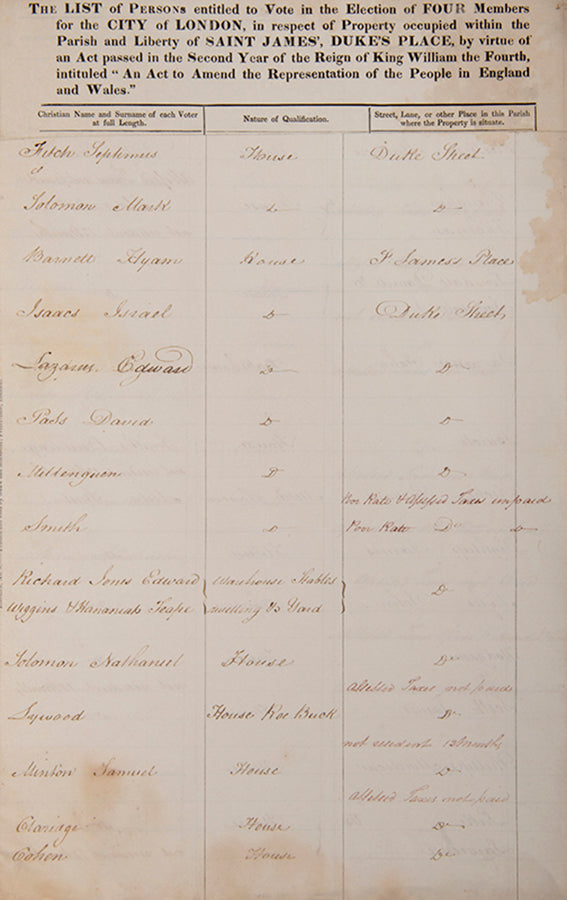 THE LIST OF PERSONS entitled to Vote in the Election of FOUR Members
for the CITY of LONDON, in respect of Property occupied within the
Parish and Liberty of SAINT JAMES', DUKE'S PLACE, by virtue of
an Act passed in the Second Year of the Reign of King William the Fourth,
intituled "An Act to Amend the Representation of the People in England
and Wales."
Christian Name and Surname of each Voter at full Length. Nature of Qualification. Street, Lane, or other Place in this Parish where the Property is situate.
Fitch Septimus House Duke Street
Solomon Mark Do Do
Barnett Hyam House St James's Place
Isaacs Israel Do Duke Street
Lazarus Edward Do Do
Pass David Do Do
Do Do
Poor Rate & Assessed Taxes unpaid
Smith Do Poor Rate Do Do
Richard Jones Edward Warehouse Stables Do
Wiggins & Hananiah Teape dwelling Ho Yard
Solomon Nathaniel House Do
Assessed Taxes not paid
Lywood House Roe Buck Do
not resident 12 Months
Minton Samuel House Do
Assessed Taxes not paid
Claridge House Do
Cohen House Do